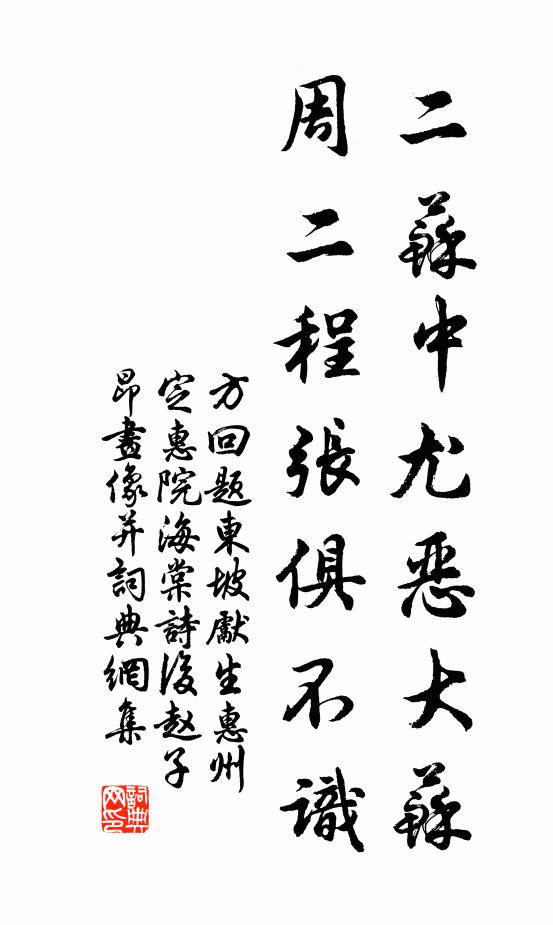 二蘇中尤惡大蘇
周二程張俱不識
方回題東坡獻生惠州
定惠院海棠詩後趙子
昂畫像并詞典網集
詞典
网印